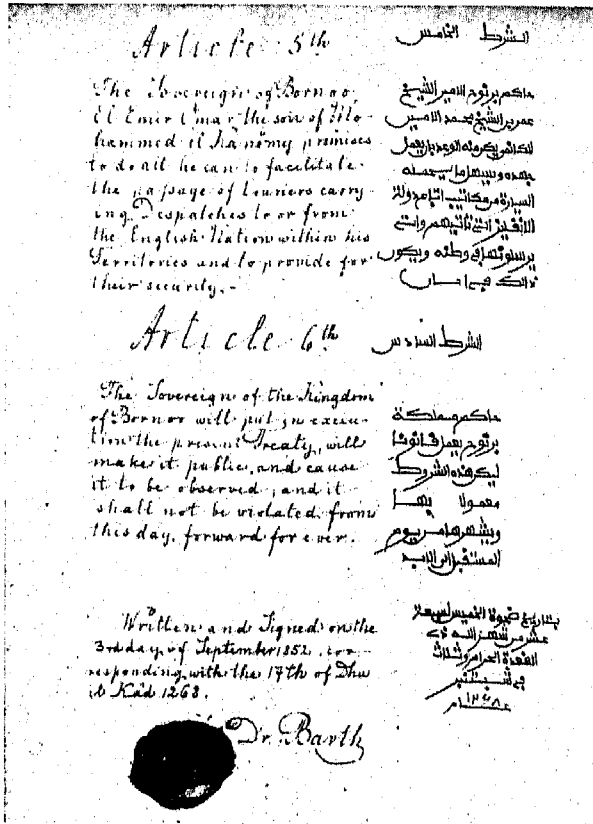 Article 5th
The Sovereign of Bornoo
El Emir Omar the son of Mo-
hammed il Kánémy promises
to do all he can to facilitate
the passage of Couriers carry-
ing Despatches to or from
the English Nation within his
Territories and to provide for
their security.-
الشرط الخامس
حاكم برنوح الامير الشيخ
عمر بن الشيخ محمد الامين
الكانمي
جهده
السيارة
الانقليز
في وطنه ويكون
ذالك في امان
Article 6th
The Sovereign of the Kingdom
of Bornoo will put in execu-
tion the present Treaty, will
make it public, and cause
it to be observed, and it
shall not be violated from
this day, forward for ever.
الشرط السادس
حاكم مملكة
برنوح يعمل قانونا
هذه الشروط
معمولا بها
ويشهرها من يوم
المستقبل الى الابد
Written and Signed on the
3rd day of September 1852, cor-
responding with the 17th of Dhu
Kad 1268.
Dr. Barth
الخميس
عشر من شهر الله ذي
القعدة الحرام
١٢٦٨